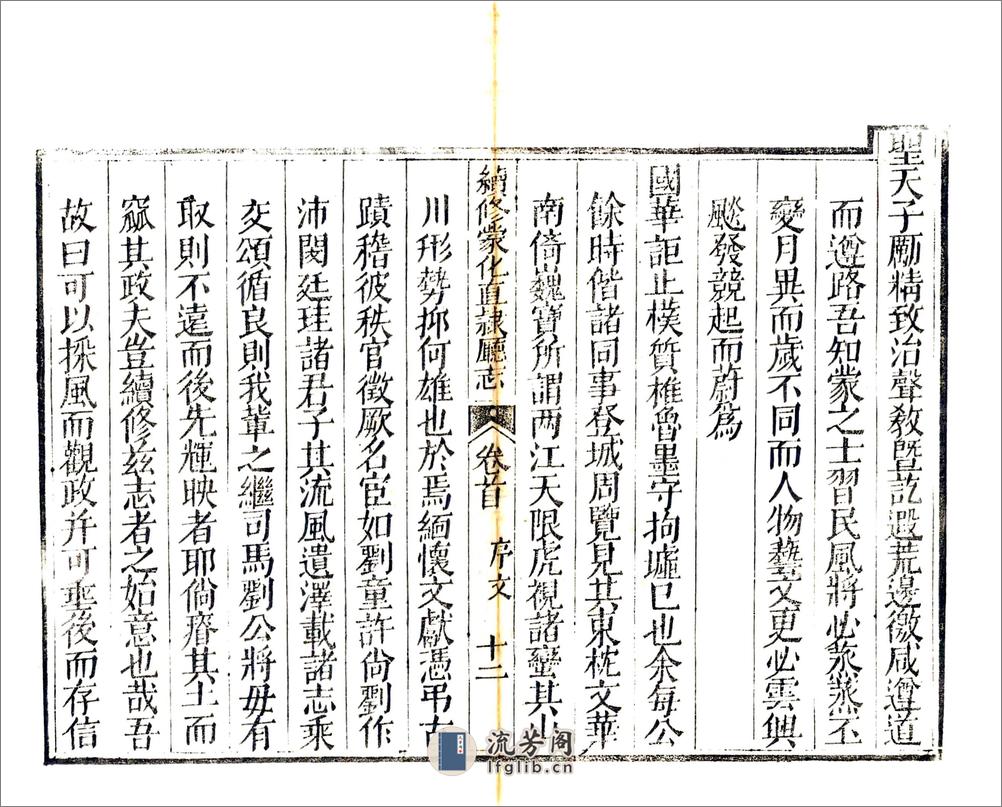 聖天子勵精致治聲敎曁訖遐荒邊徼咸遵道
而遵路吾知蒙之士習民風將必烝烝丕
變月異而歲不同而人物藝文更必雲興
颷發競起而蔚爲
國華詎止樸質椎魯墨守拘墟已也余每公
餘時偕諸同事登城周覽見其東枕文華
南倚巍寶所謂两江天限虎視諸蠻其山
川形勢抑何雄也於焉緬懷文獻憑弔古
蹟稽彼秩官徵厥名宦如劉童許尙劉作
沛閔廷珪諸君子其流風遺澤載諸志乘
交頌循良則我輩之繼司馬劉公將毋有
取則不遠而後先輝映者耶倘瘠其土而
窳其政夫豈續修兹志者之始意也哉吾
故曰可以採風而觀政幷可垂後而存信
續修蒙化直隸廳志 卷首 序文 十二
流芳阁
lfglib.cn